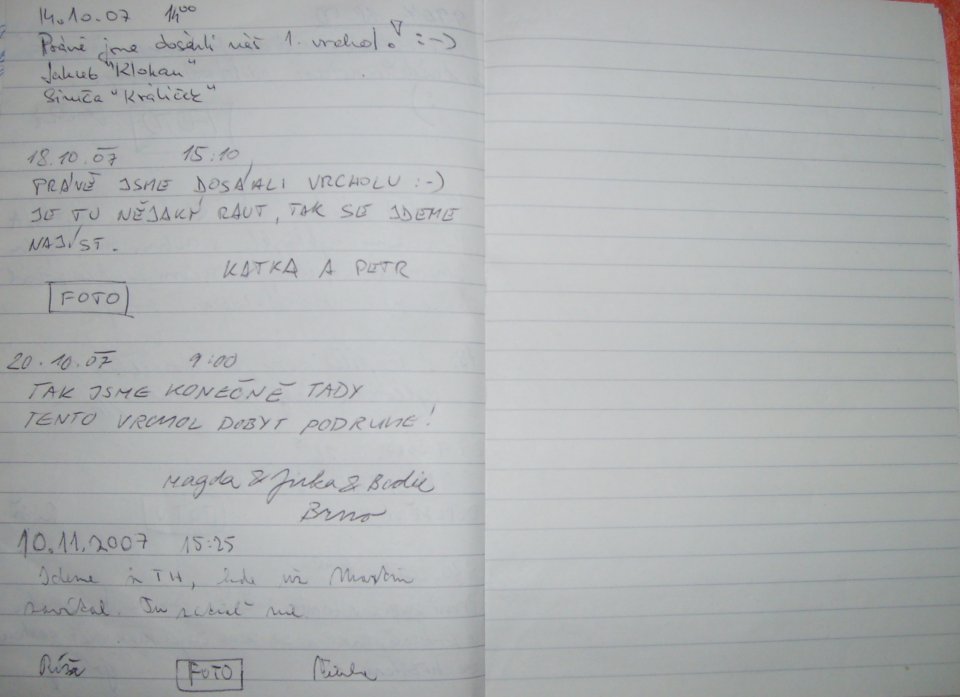 14.10.07 14⁰⁰
Právě jsme dosáhli náš 1. vrchol! :-)
Jakub "Klokan"
Simča "Králíček"
18.10.07 15:10
PRÁVĚ JSME DOSÁHLI VRCHOLU :-)
JE TU NĚJAKÝ RAUT, TAK SE JDEME
NAJÍST.
KATKA A PETR
FOTO
20.10.07 9:00
TAK JSME KONEČNĚ TADY
TENTO VRCHOL DOBYT PODRUHÉ!
Magda & Jirka &
Brno
10.11.2007 15:25
Jdeme z TH, kde
Ríša FOTO